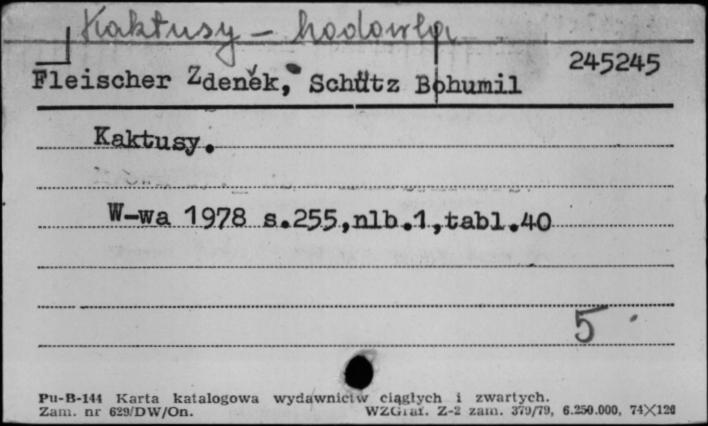 Kaktusy – hodowla
245245
Fleischer Zdeněk, Schütz Bohumil
Kaktusy.
W-wa 1978 s.255,nlb.1,tabl.40
5
Pu-B-144 Karta katalogowa wydawnictw ciągłych i zwartych.
Zam. nr 629/DW/On. WZGraf. Z-2 zam. 379/79, 6.250.000, 74×120